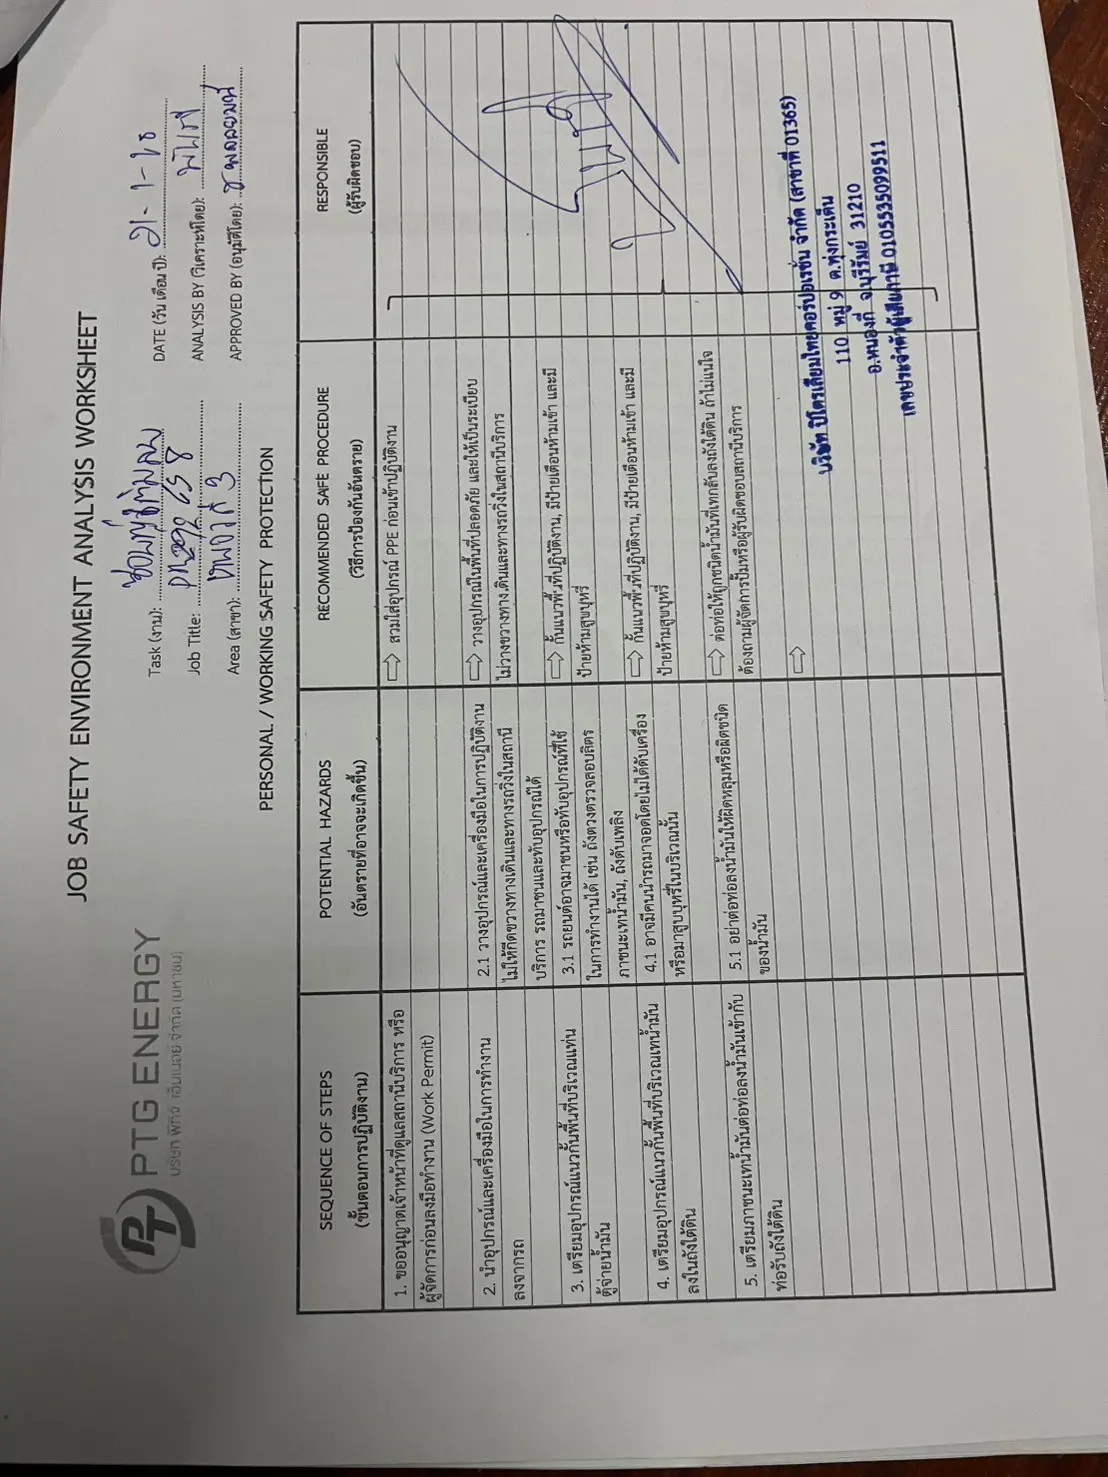 PTG ENERGY
บริษัท พีทีจี เอ็นเนอยี จำกัด (มหาชน)
JOB SAFETY ENVIRONMENT ANALYSIS WORKSHEET
Task (งาน):
DATE (วัน เดือน ปี): 21-1-
Job Title:
ANALYSIS BY (วิเคราะห์โดย):
Area (สาขา):
APPROVED BY (อนุมัติโดย):
PERSONAL / WORKING SAFETY PROTECTION
SEQUENCE OF STEPS
(ขั้นตอนการปฏิบัติงาน)
POTENTIAL HAZARDS
(อันตรายที่อาจจะเกิดขึ้น)
RECOMMENDED SAFE PROCEDURE
(วิธีการป้องกันอันตราย)
RESPONSIBLE
(ผู้รับผิดชอบ)
1. ขออนุญาตเจ้าหน้าที่ดูแลสถานีบริการ หรือ
ผู้จัดการก่อนลงมือทำงาน (Work Permit)
⇨ สวมใส่อุปกรณ์ PPE ก่อนเข้าปฏิบัติงาน
2. นำอุปกรณ์และเครื่องมือในการทำงาน
ลงจากรถ
2.1 วางอุปกรณ์และเครื่องมือในการปฏิบัติงาน
ไม่ให้กีดขวางทางเดินและทางรถวิ่งในสถานี
บริการ รถมาชนและทับอุปกรณ์ได้
⇨ วางอุปกรณ์ในพื้นที่ปลอดภัย และให้เป็นระเบียบ
ไม่วางขวางทาง.เดินและทางรถวิ่งในสถานีบริการ
3. เตรียมอุปกรณ์แนวกั้นพื้นที่บริเวณแท่น
ตู้จ่ายน้ำมัน
3.1 รถยนต์อาจมาชนหรือทับอุปกรณ์ที่ใช้
ในการทำงานได้ เช่น ถังตวงตรวจสอบลิตร
ภาชนะเทน้ำมัน, ถังดับเพลิง
⇨ กั้นแนวพื้นที่ปฏิบัติงาน, มีป้ายเตือนห้ามเข้า และมี
ป้ายห้ามสูบบุหรี่
4. เตรียมอุปกรณ์แนวกั้นพื้นที่บริเวณเทน้ำมัน
ลงในถังใต้ดิน
4.1 อาจมีคนนำรถมาจอดโดยไม่ได้ดับเครื่อง
หรือมาสูบบุหรี่ในบริเวณนั้น
⇨ กั้นแนวพื้นที่ปฏิบัติงาน, มีป้ายเตือนห้ามเข้า และมี
ป้ายห้ามสูบบุหรี่
5. เตรียมภาชนะเทน้ำมันต่อท่อลงน้ำมันเข้ากับ
ท่อรับถังใต้ดิน
5.1 อย่าต่อท่อลงน้ำมันให้ผิดหลุมหรือผิดชนิด
ของน้ำมัน
⇨ ต่อท่อให้ถูกชนิดน้ำมันที่เทกลับลงถังใต้ดิน ถ้าไม่แน่ใจ
ต้องถามผู้จัดการปั๊มหรือผู้รับผิดชอบสถานีบริการ
⇨
บริษัท ปิโตรเลียมไทยคอร์ปอเรชั่น จำกัด (สาขาที่ 01365)
110 หมู่ 9 ต.ทุ่งกระเต็น
อ.หนองกี่ จ.บุรีรัมย์ 31210
เลขประจำตัวผู้เสียภาษี 0105535099511